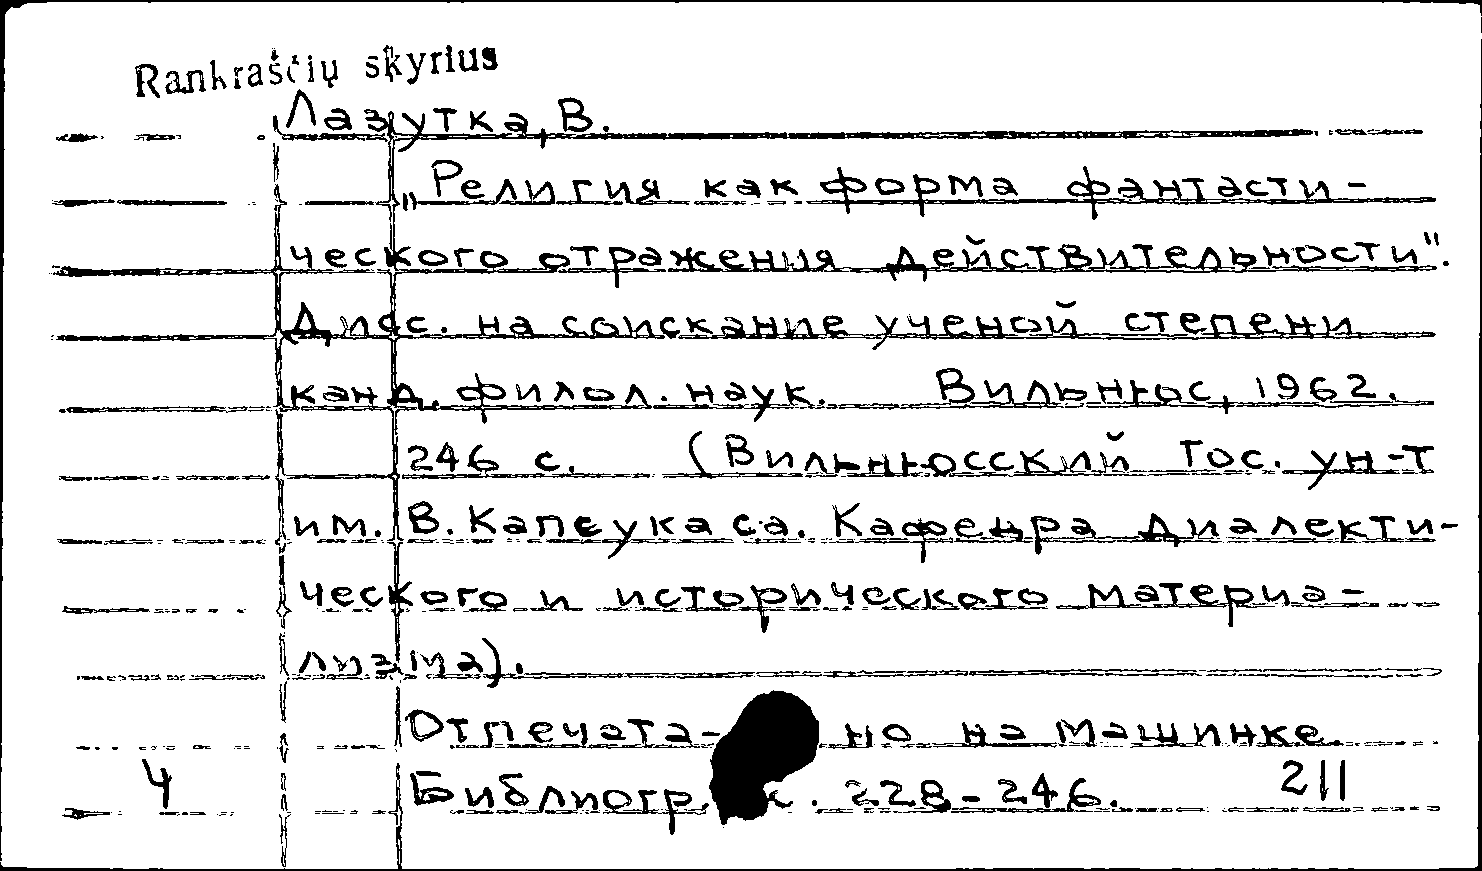 Rankraščių skyrius
Лазутка, В.
„Религия как форма фантасти-
ческого отражения действительности".
Дисс. на соискание ученой степени
канд. филол. наук. Вильнюс, 1962.
246 с. (Вильнюсский Гос. ун-т
им. В. Капсукаса. Кафедра диалекти-
ческого и исторического материа-
лизма).
Отпечата- но на машинке.
Библиогр. с. 228-246.
4 211